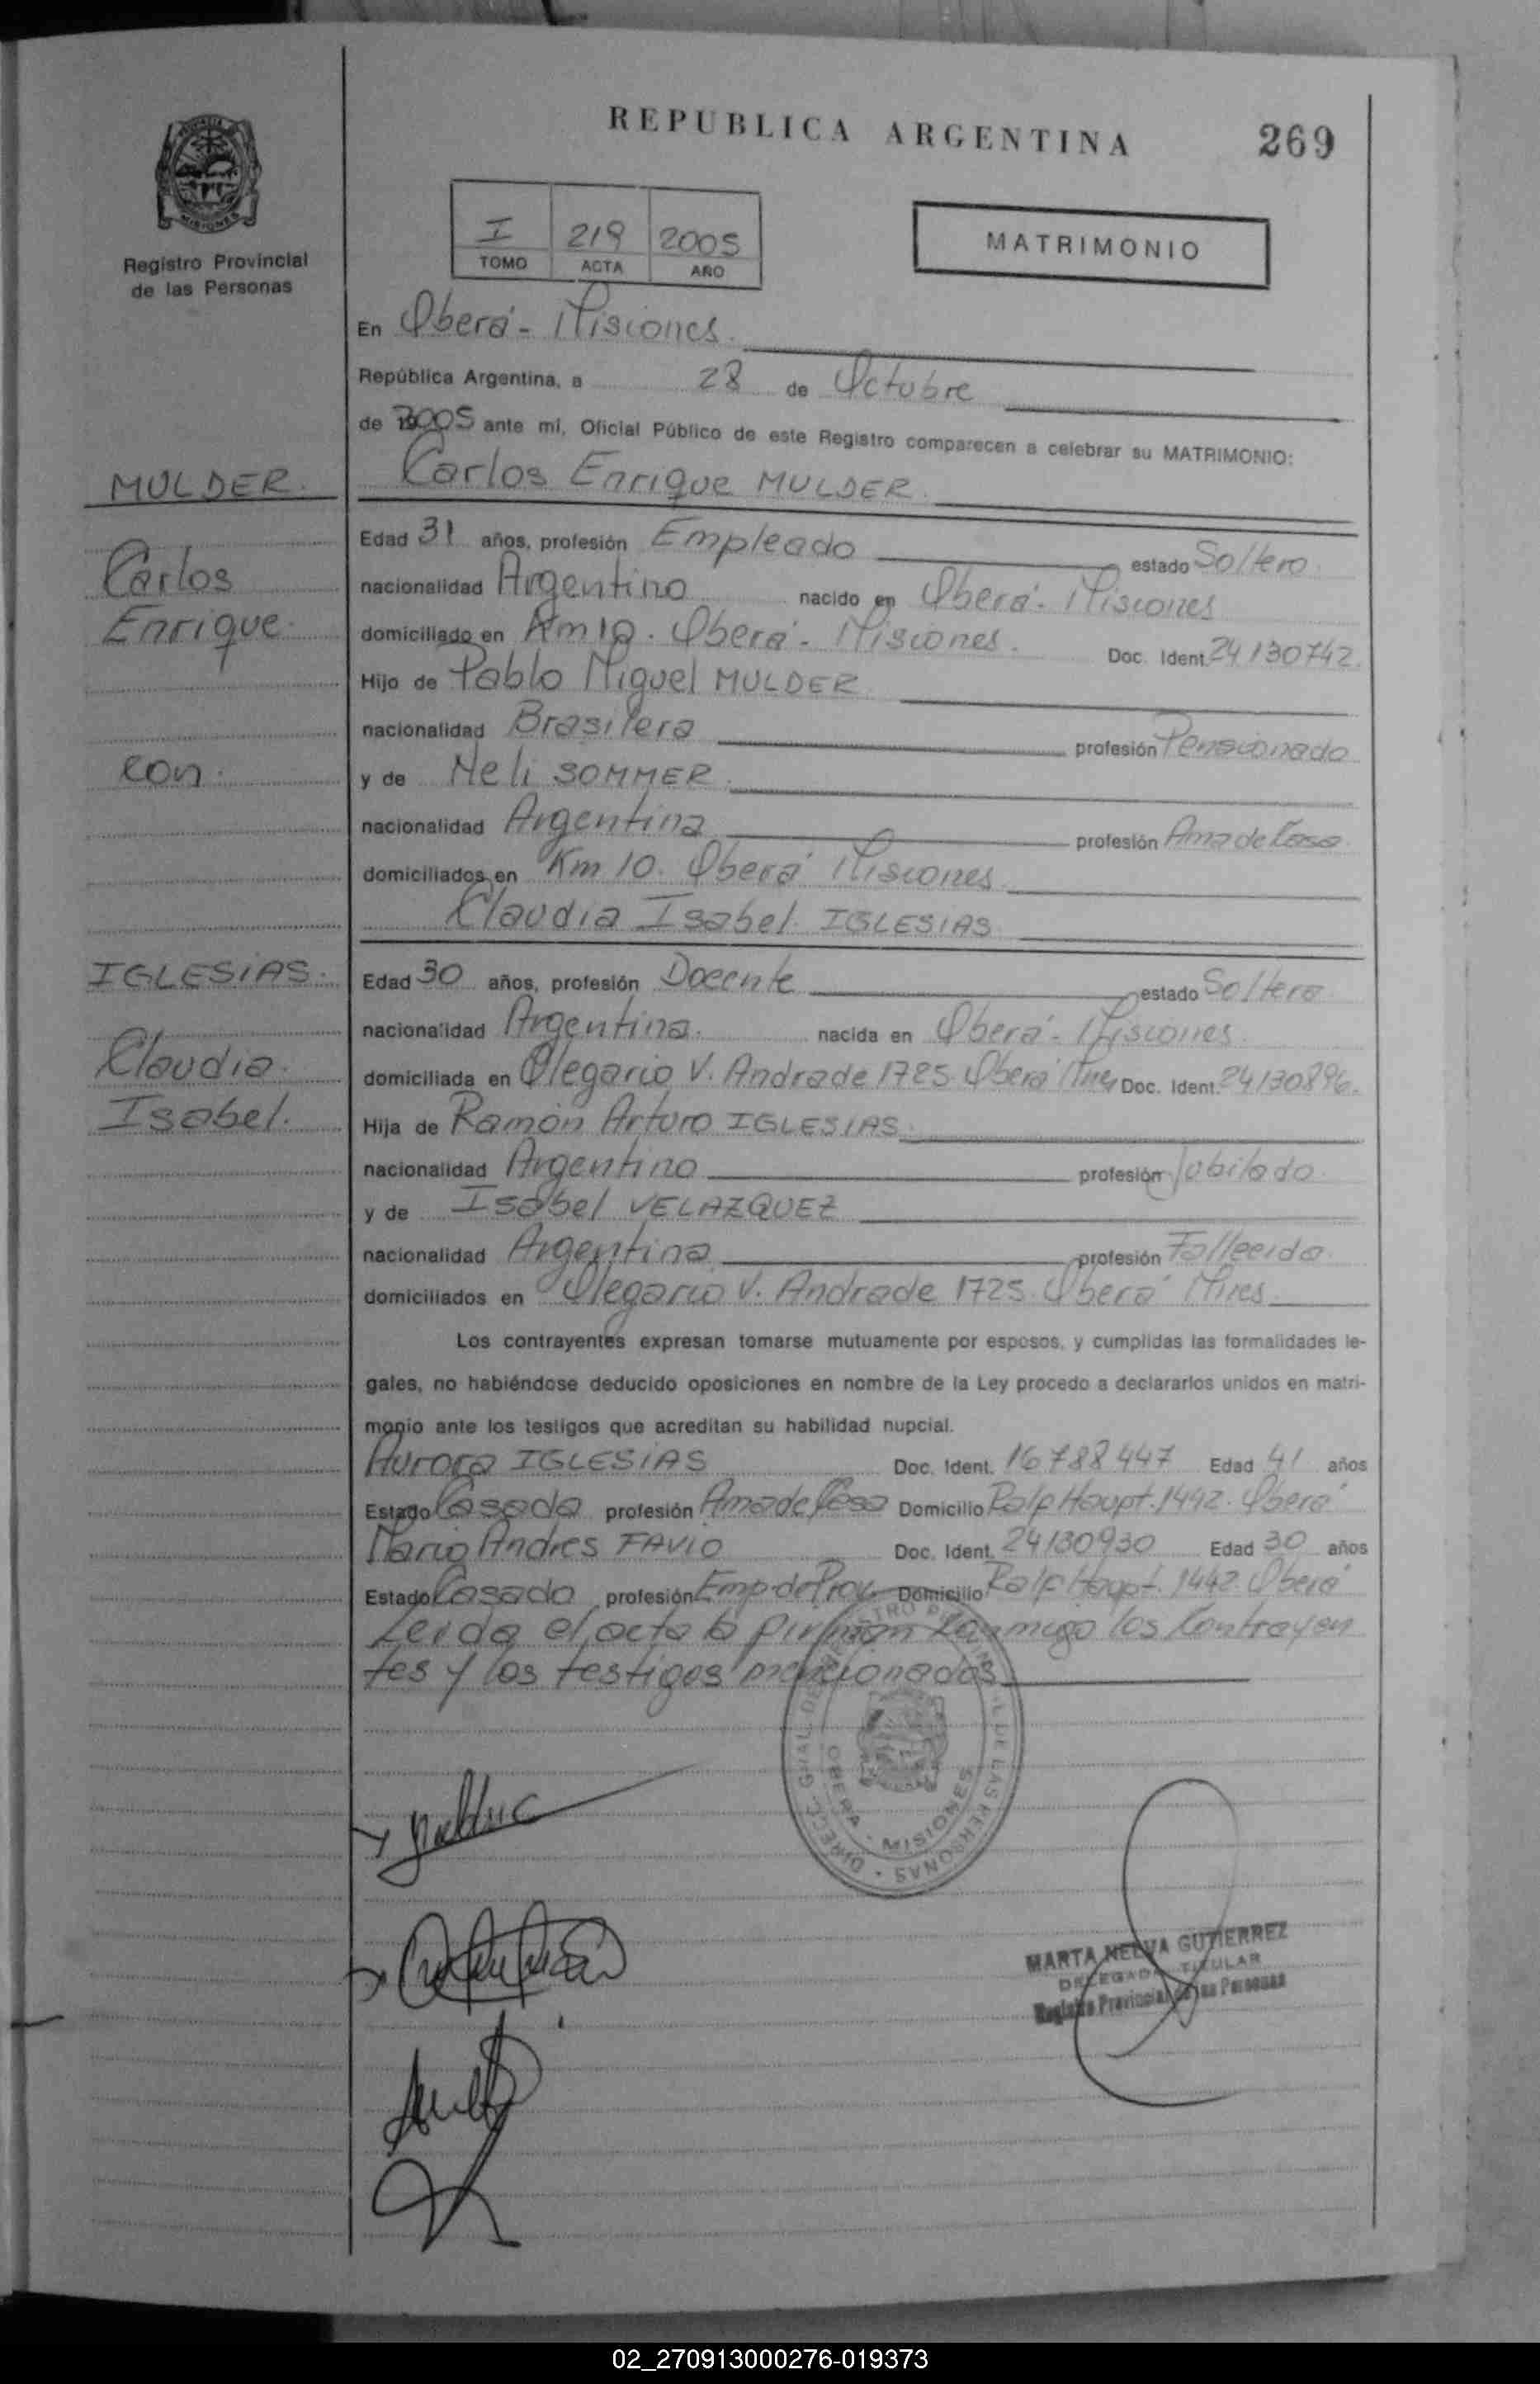 REPUBLICA ARGENTINA
269
PROVINCIA
MISIONES
Registro Provincial
de las Personas
I 219 2005
TOMO ACTA AÑO
MATRIMONIO
En Oberá - Misiones.
República Argentina, a 28 de Octubre
de 2005 ante mí, Oficial Público de este Registro comparecen a celebrar su MATRIMONIO:
MULDER.
Carlos Enrique MULDER.
Edad 31 años, profesión Empleado estado Soltero.
Carlos
nacionalidad Argentino nacido en Oberá - Misiones
Enrique.
domiciliado en Km 10. Oberá - Misiones. Doc. Ident. 24130742.
Hijo de Pablo Miguel MULDER
nacionalidad Brasilera profesión Pensionado
con.
y de Neli SOMMER.
nacionalidad Argentina profesión Ama de Casa.
domiciliados en Km 10. Oberá Misiones.
Claudia Isabel IGLESIAS
IGLESIAS.
Edad 30 años, profesión Docente estado Soltera
nacionalidad Argentina. nacida en Oberá - Misiones.
Claudia.
domiciliada en Olegario V. Andrade 1725. Oberá Mnes Doc. Ident. 24130896.
Isabel.
Hija de Ramón Arturo IGLESIAS.
nacionalidad Argentino profesión Jubilado.
y de Isabel VELAZQUEZ
nacionalidad Argentina profesión Fallecida.
domiciliados en Olegario V. Andrade 1725. Oberá Mnes.
Los contrayentes expresan tomarse mutuamente por esposos, y cumplidas las formalidades le-
gales, no habiéndose deducido oposiciones en nombre de la Ley procedo a declararlos unidos en matri-
monio ante los testigos que acreditan su habilidad nupcial.
Aurora IGLESIAS Doc. Ident. 16788447 Edad 41 años
Estado Casada profesión Ama de Casa Domicilio Ralf Haupt. 1442. Oberá
Mario Andres FAVIO Doc. Ident. 24130930 Edad 30 años
Estado Casado profesión Emp. de Proy. Domicilio Ralf Haupt. 1442. Oberá
Leida el acta la firman conmigo los Contrayen
tes y los testigos mencionados
DIRECC. GRAL. DEL REGISTRO PROVINCIAL DE LAS PERSONAS
OBERA - MISIONES
MARTA NELVA GUTIERREZ
DELEGADA TITULAR
Registro Provincial de las Personas
02_270913000276-019373